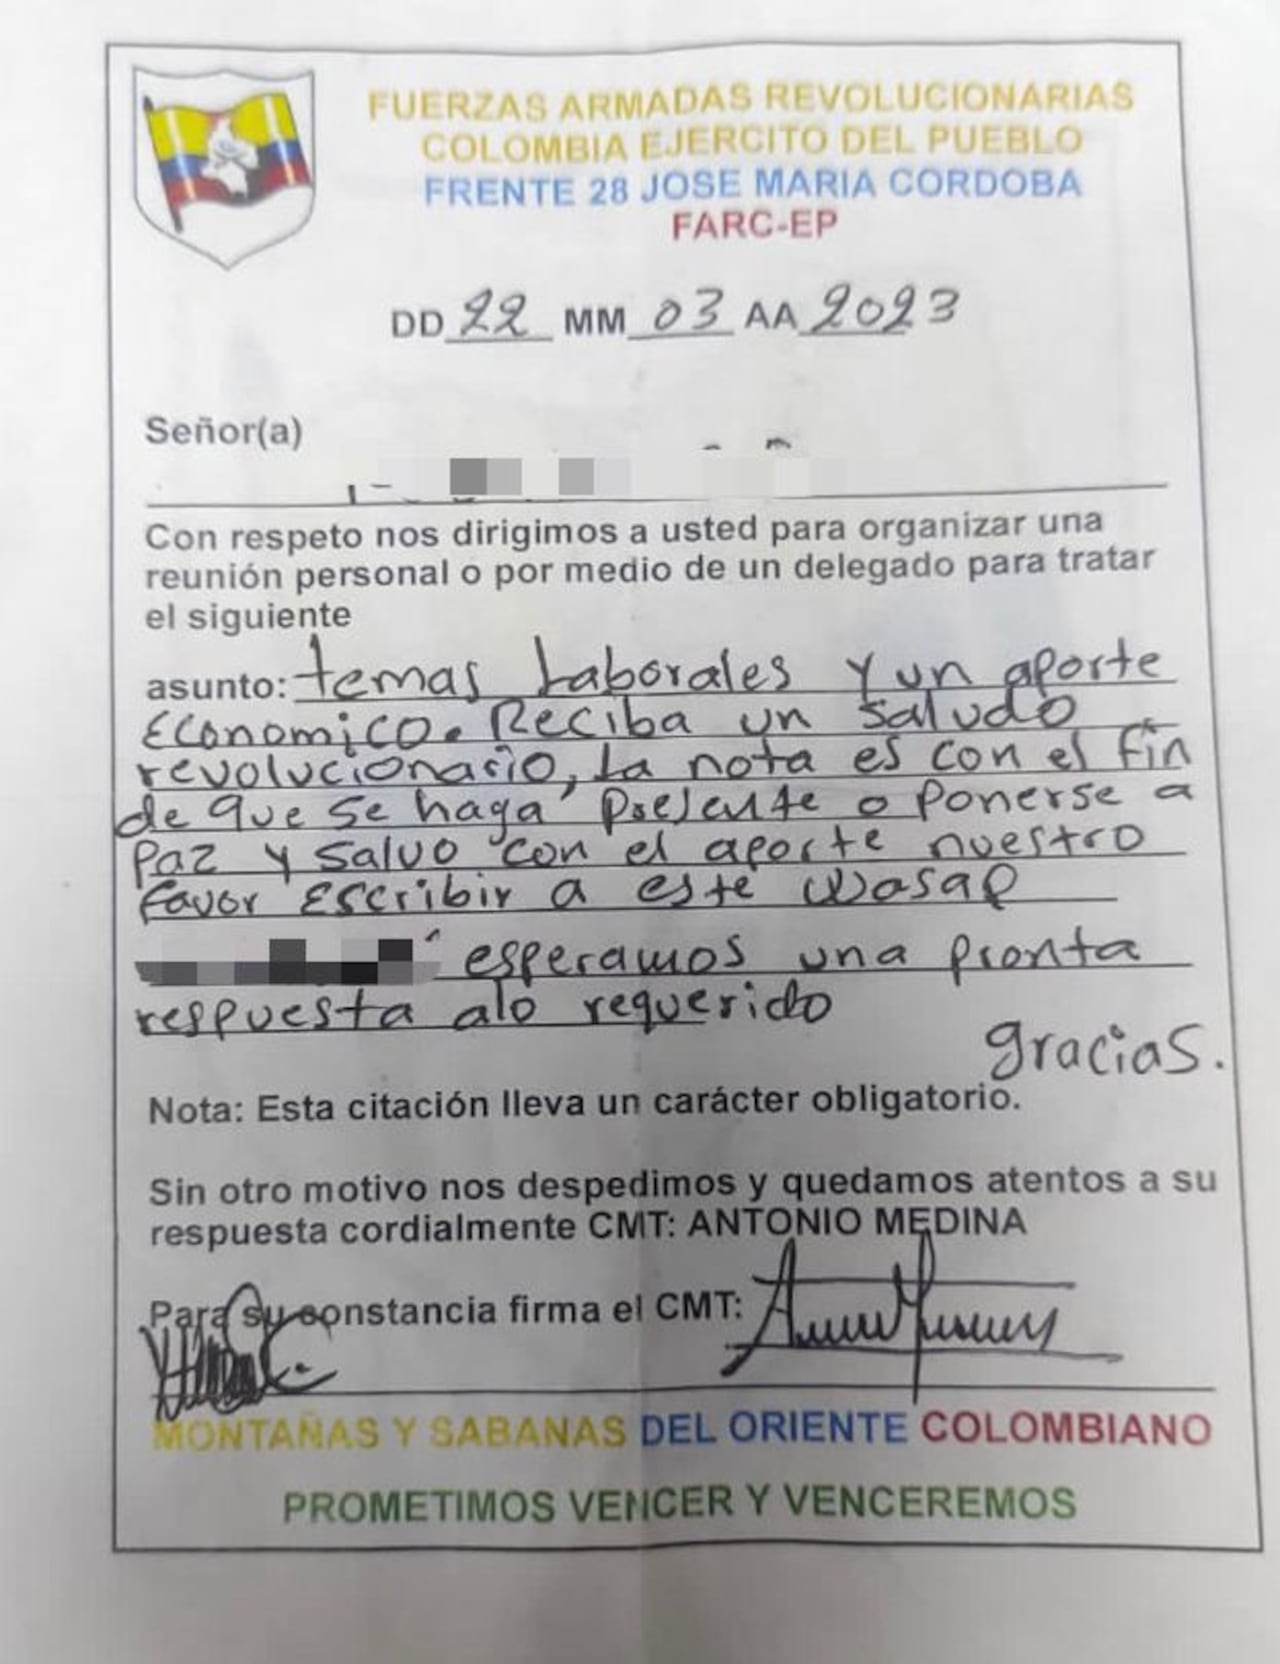 FUERZAS ARMADAS REVOLUCIONARIAS
COLOMBIA EJERCITO DEL PUEBLO
FRENTE 28 JOSE MARIA CORDOBA
FARC-EP
DD 22 MM 03 AA 2023
Señor(a)
Con respeto nos dirigimos a usted para organizar una
reunión personal o por medio de un delegado para tratar
el siguiente
asunto: temas Laborales y un aporte
Economico. Reciba un saludo
revolucionario, La nota es con el fin
de que se haga presente o ponerse a
Paz y Salvo con el aporte nuestro
favor Escribir a este Wasap
esperamos una pronta
respuesta alo requerido
gracias.
Nota: Esta citación lleva un carácter obligatorio.
Sin otro motivo nos despedimos y quedamos atentos a su
respuesta cordialmente CMT: ANTONIO MEDINA
Para su constancia firma el CMT:
MONTAÑAS Y SABANAS DEL ORIENTE COLOMBIANO
PROMETIMOS VENCER Y VENCEREMOS